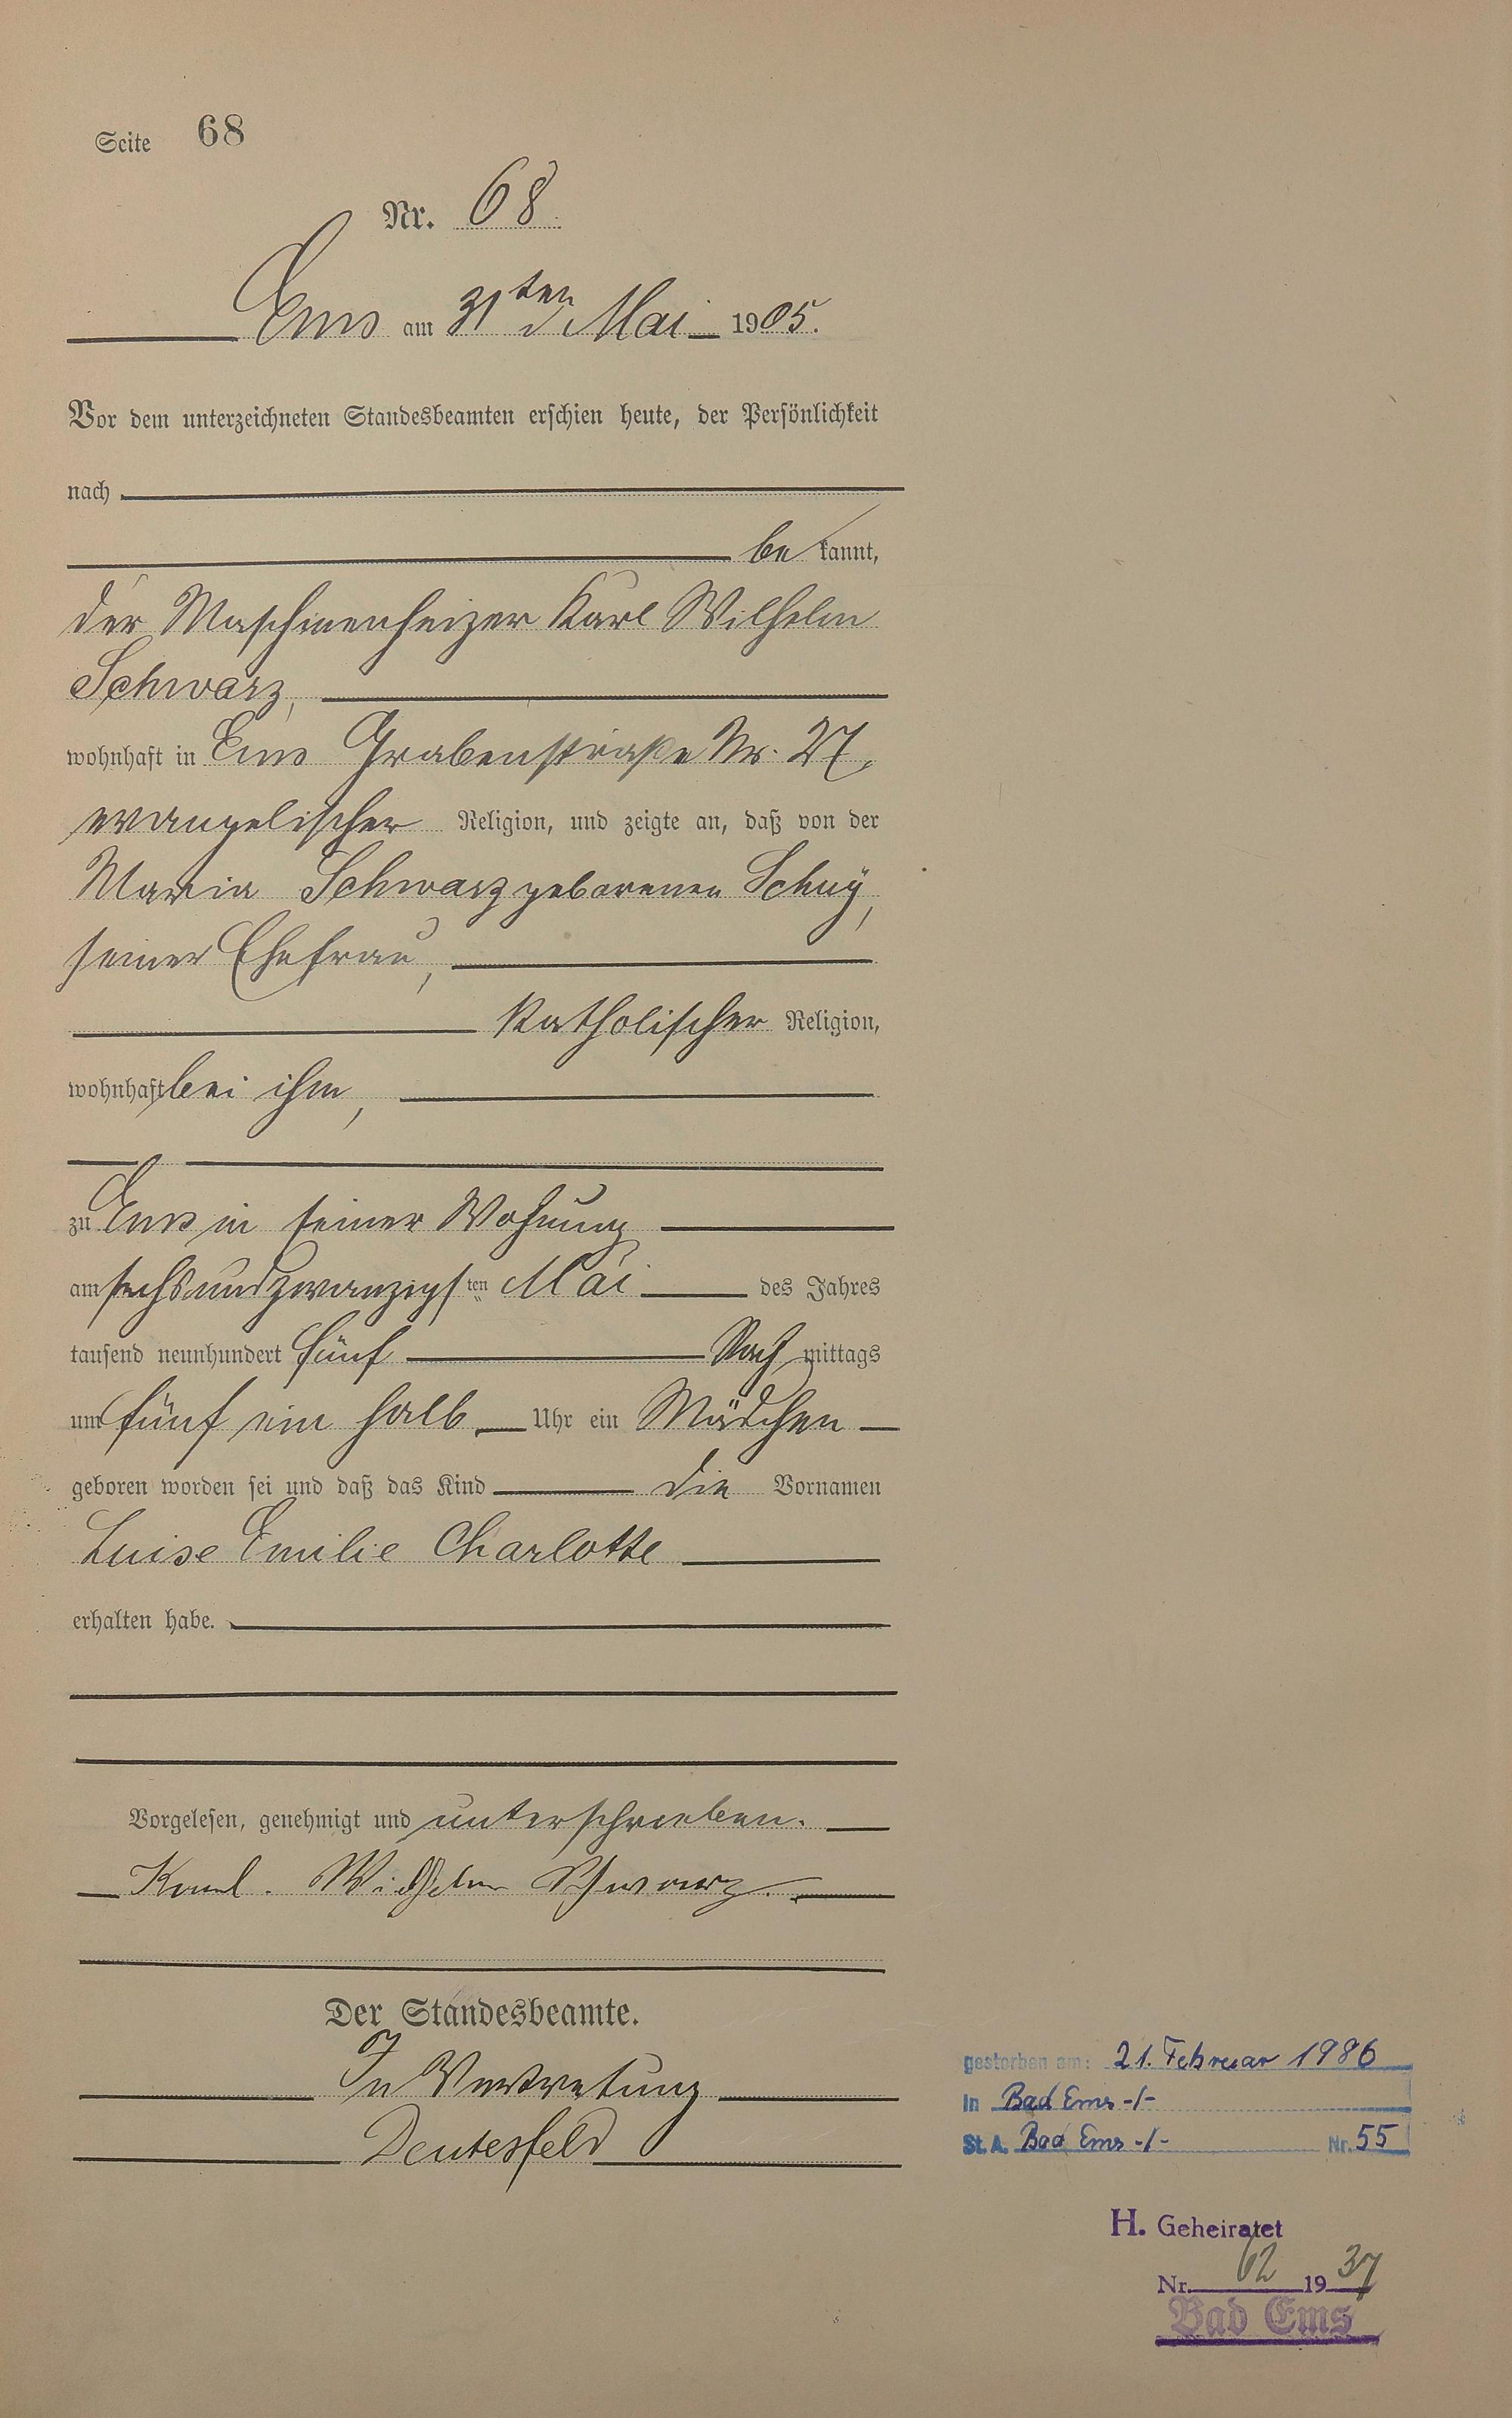 Seite 68
Nr. 68.
Ems am 31ten Mai 1905.
Vor dem unterzeichneten Standesbeamten erschien heute, der Persönlichkeit
nach
be kannt,
der Maschinenheizer Karl Wilhelm
Schwarz,
wohnhaft in Ems Grabenstraße Nr. 27,
evangelischer Religion, und zeigte an, daß von der
Maria Schwarz geborenen Schuy,
seiner Ehefrau,
katholischer Religion,
wohnhaft bei ihm,
zu Ems in seiner Wohnung
am sechsundzwanzigsten Mai des Jahres
tausend neunhundert fünf Nach mittags
um fünf ein halb Uhr ein Mädchen
geboren worden sei und daß das Kind die Vornamen
Luise Emilie Charlotte
erhalten habe.
Vorgelesen, genehmigt und unterschrieben.
Karl. Wilhelm Schwarz.
Der Standesbeamte.
In Vertretung
Deutesfeld
gestorben am: 21. Februar 1986
in Bad Ems -/-
St. A. Bad Ems -/- Nr. 55
H. Geheiratet
Nr. 62 1937
Bad Ems